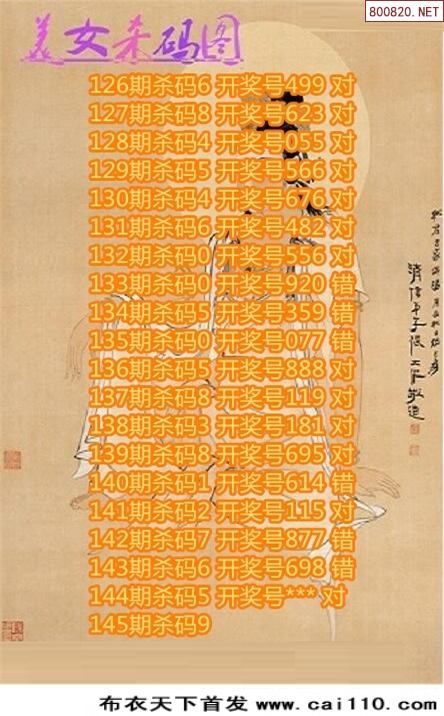 800820.NET
美女杀码图
126期杀码6 开奖号499 对
127期杀码8 开奖号623 对
128期杀码4 开奖号055 对
129期杀码5 开奖号566 对
130期杀码4 开奖号676 对
131期杀码6 开奖号482 对
132期杀码0 开奖号556 对
133期杀码0 开奖号920 错
134期杀码5 开奖号359 错
135期杀码0 开奖号077 错
136期杀码5 开奖号888 对
137期杀码8 开奖号119 对
138期杀码3 开奖号181 对
139期杀码8 开奖号695 对
140期杀码1 开奖号614 错
141期杀码2 开奖号115 对
142期杀码7 开奖号877 错
143期杀码6 开奖号698 错
144期杀码5 开奖号*** 对
145期杀码9
布衣天下首发 www.cai110.com